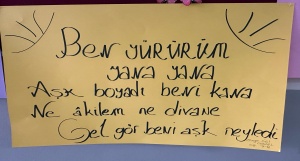 Ben yürürüm
yana yana
Aşk boyadı beni kana
Ne âkilem ne divane
Gel gör beni aşk neyledi